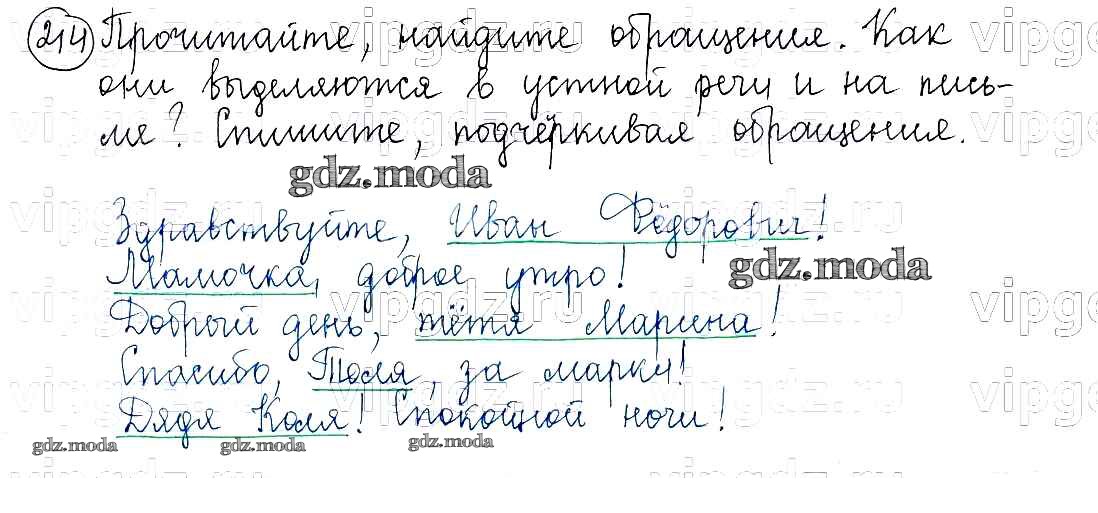 214 Прочитайте, найдите обращения. Как
они выделяются в устной речи и на пись-
ме? Спишите, подчёркивая обращения.
gdz.moda
Здравствуйте, Иван Фёдорович!
Мамочка, доброе утро!
gdz.moda
Добрый день, тётя Марина!
Спасибо, Толя, за марку!
Дядя Коля! Спокойной ночи!
gdz.moda gdz.moda gdz.moda